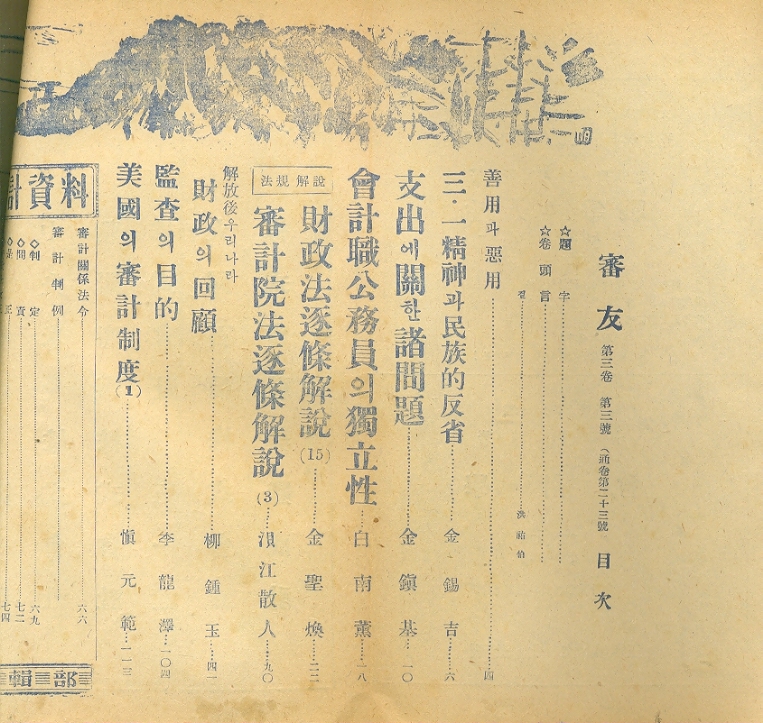 審友 第三卷 第三號 (通卷第二十三號) 目次
☆題字
☆卷頭言
善用과惡用 四
三·一精神과民族的反省 金錫吉 六
支出에關한諸問題 金鎭基 一〇
會計職公務員의獨立性 白南薰 一八
法規解說
財政法逐條解說(15) 金聖煥 二二
審計院法逐條解說(3) 浿江散人 九〇
解放後우리나라
財政의回顧 柳鍾玉 四一
監査의目的 李龍澤 一〇四
美國의審計制度(1) 愼元範 一一三
計資料
審計關係法令 六六
審計判例
◇判定 六九
◇問責 七二
正 七四
輯部